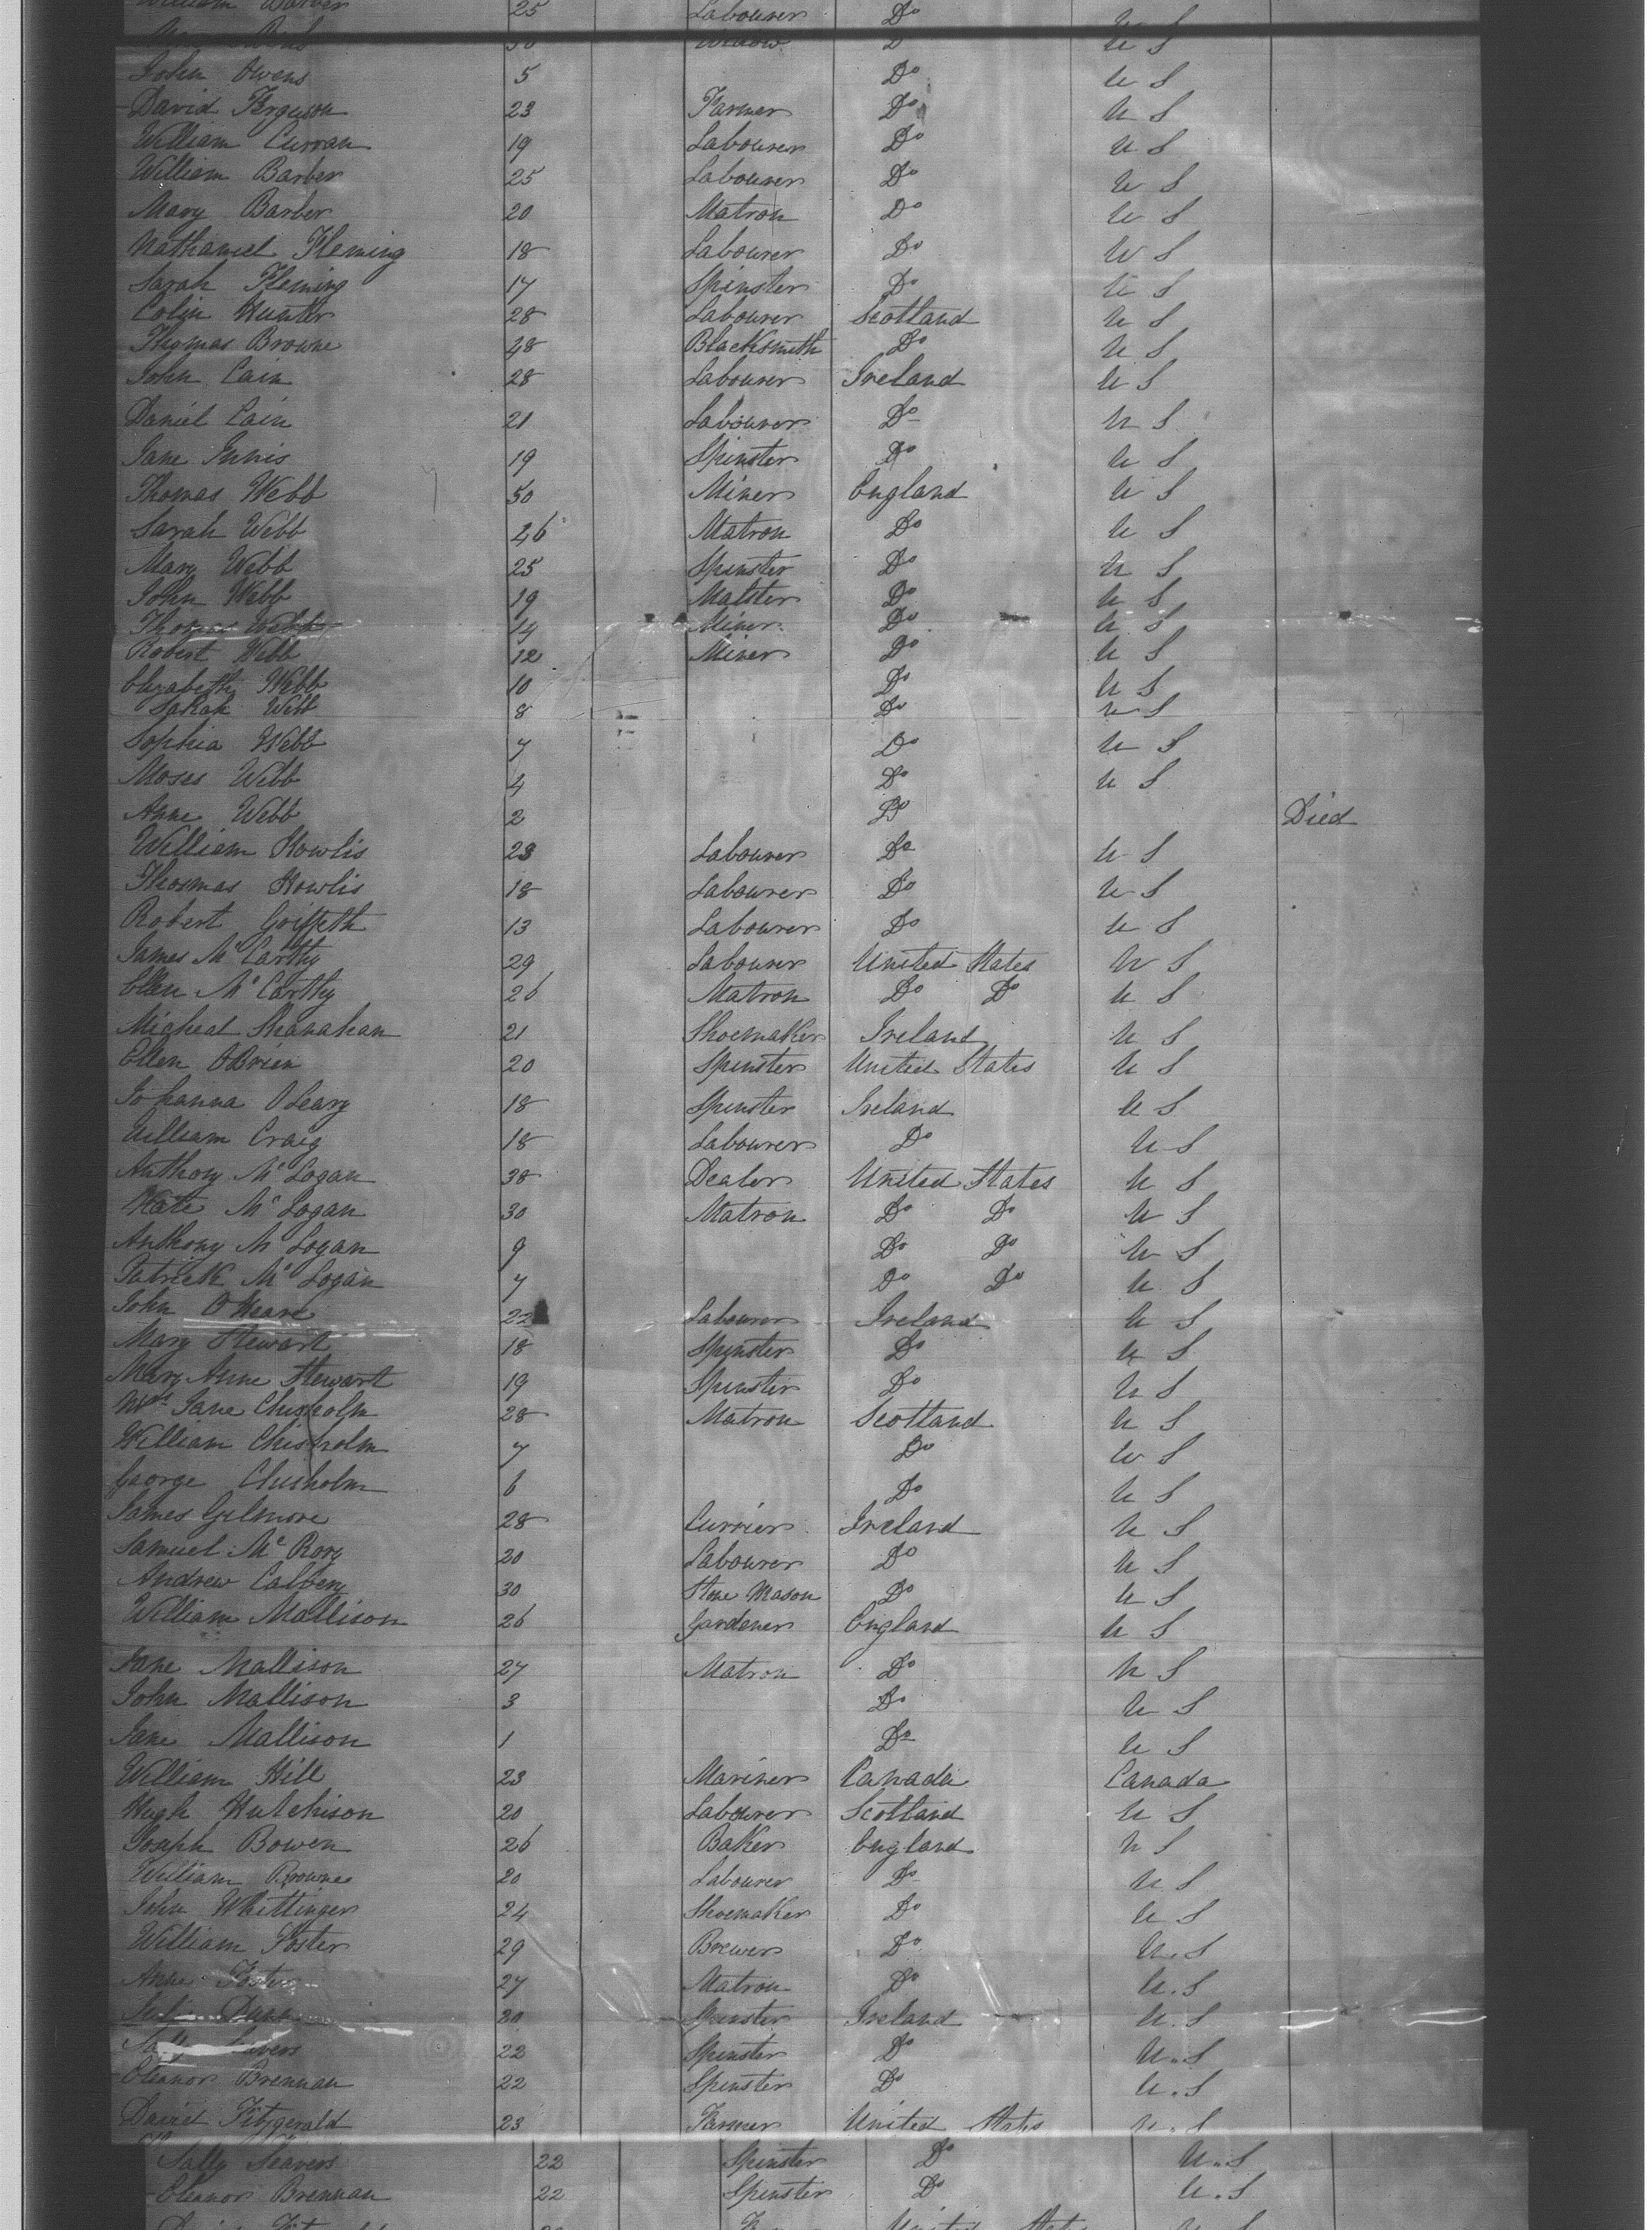 William Barber 25 Labourer Do U S
30 Widow D U S
John Owens 5 Do U S
David Ferguson 23 Farmer Do U S
William Curran 19 Labourer Do U S
William Barber 25 Labourer Do U S
Mary Barber 20 Matron Do U S
Nathaniel Fleming 18 Labourer Do U S
Sarah Fleming 17 Spinster Do U S
Colin Hunter 28 Labourer Scotland U S
Thomas Browne 48 Blacksmith Do U S
John Cain 28 Labourer Ireland U S
Daniel Cain 21 Labourer Do U S
Jane Innis 19 Spinster Do U S
Thomas Webb 50 Miner England U S
Sarah Webb 46 Matron Do U S
Mary Webb 25 Spinster Do U S
John Webb 19 Malster Do U S
Thomas Webb 14 Miner Do U S
Robert Webb 12 Miner Do U S
Elizabeth Webb 10 Do U S
Sarah Webb 8 Do U S
Sophia Webb 7 Do U S
Moses Webb 4 Do U S
Anne Webb 2 Do Died
William Howlis 23 Labourer Do U S
Thosmas Howlis 18 Labourer Do U S
Robert Griffeth 13 Labourer Do U S
James McCarthy 29 Labourer United States U S
Ellen McCarthy 26 Matron Do Do U S
Micheal Shanahan 21 Shoemaker Ireland U S
Ellen OBrien 20 Spinster United States U S
Johanna OLeary 18 Spinster Ireland U S
William Craig 18 Labourer Do U S
Anthony McLogan 38 Dealer United States U S
Kate McLogan 30 Matron Do Do U S
Anthony McLogan 9 Do Do U S
Patrick McLogan 7 Do Do U S
John OMeara 22 Labourer Ireland U S
Mary Stewart 18 Spinster Do U S
Mary Anne Stewart 19 Spinster Do U S
Mrs Jane Chisholm 28 Matron Scotland U S
William Chisholm 7 Do U S
George Chisholm 6 Do U S
James Gilmore 28 Currier Ireland U S
Samuel McRory 20 Labourer Do U S
Andrew Calbery 30 Stone Mason Do U S
William Mallison 26 Gardener England U S
Jane Mallison 27 Matron Do U S
John Mallison 3 Do U S
Jane Mallison 1 Do U S
William Hill 23 Mariner Canada Canada
Hugh Hutchison 20 Labourer Scotland U S
Joseph Bowen 26 Baker England U S
William Browne 20 Labourer Do U S
John Whittinger 24 Shoemaker Do U S
William Foster 29 Brewer Do U.S
Anne Foster 27 Matron Do U.S
Dunn 20 Spinster Ireland U.S
22 Spinster Do U.S
Eleanor Brennan 22 Spinster Do U.S
David Fitzgerald 23 Farmer United States U.S
Sally Seavers 22 Spinster Do U.S
Eleanor Brennan 22 Spinster Do U.S